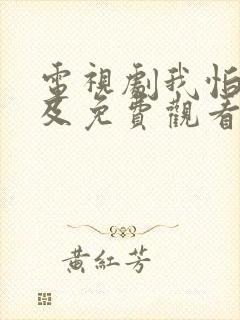 電視劇我怕
及免費觀看
黃紅芳